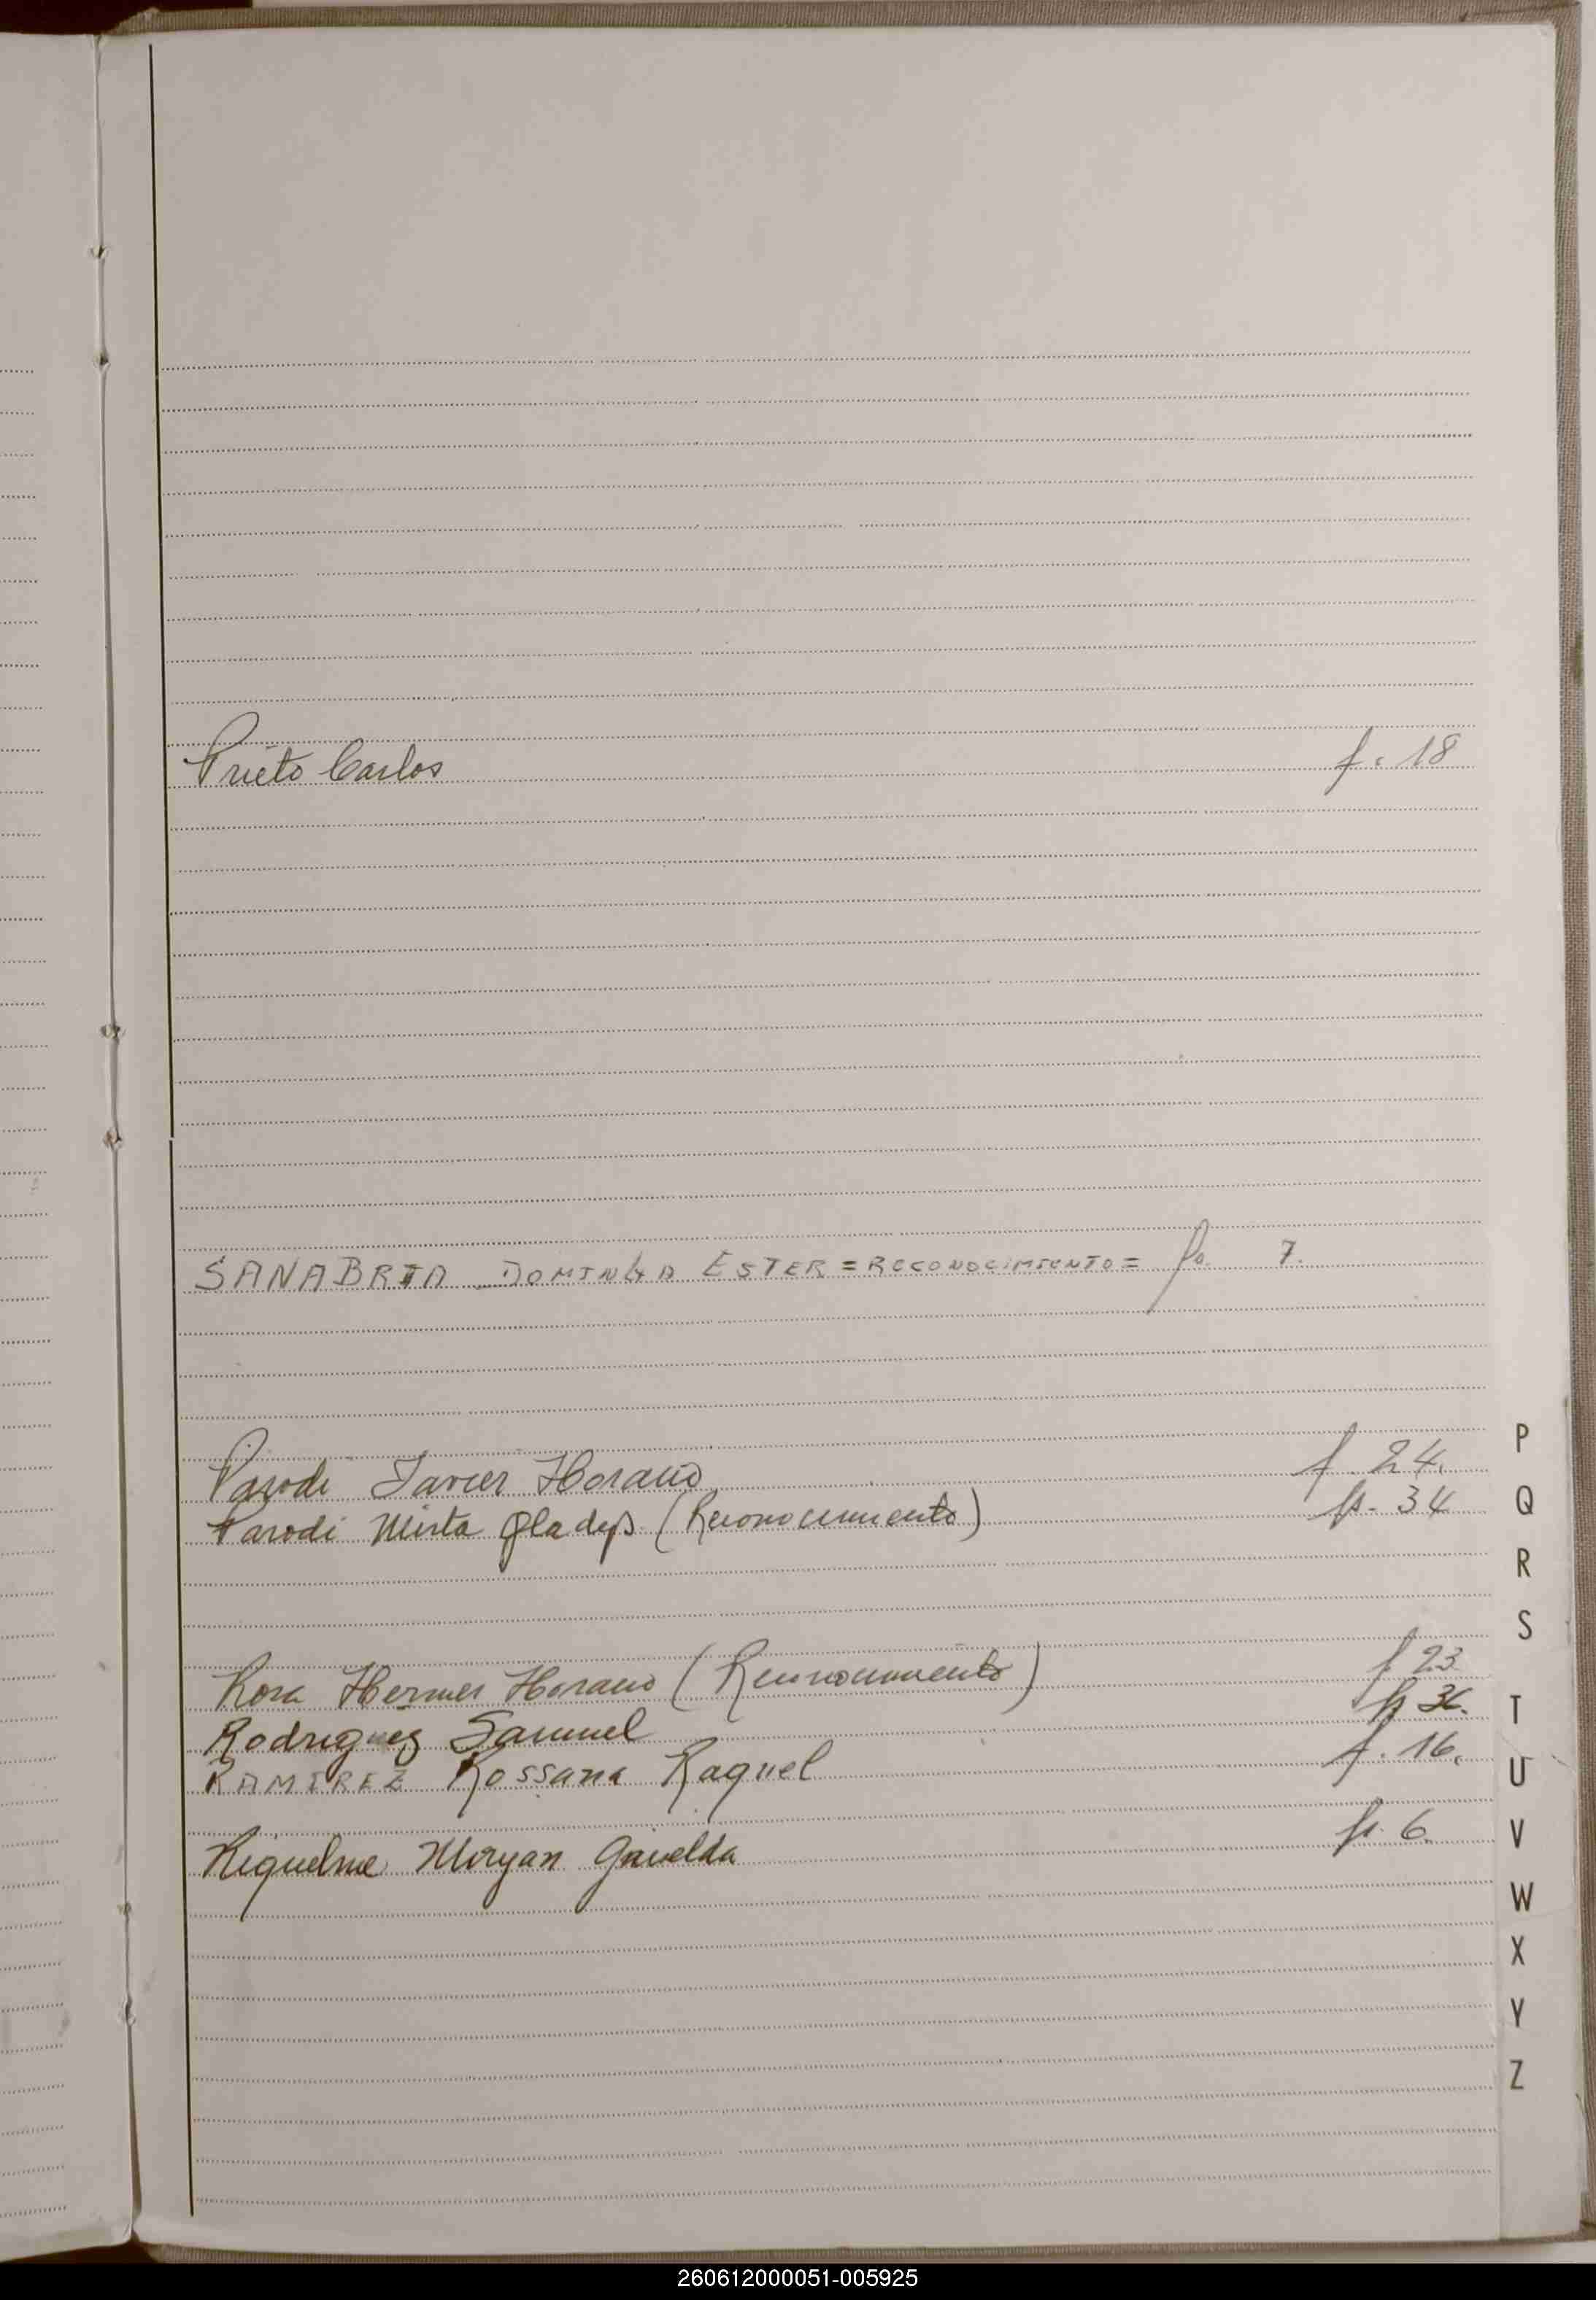 Prieto Carlos f. 18
SANABRIA DOMINGA ESTER = RECONOCIMIENTO = fo. 7.
Parodi Javier Horacio f. 24.
Parodi Mirta Gladys (Reconocimiento) fs. 34
P
Q
R
S
Rosa Hermes Horacio (Reconocimiento) f 23
Rodriguez Samuel fs 36.
RAMIREZ Rossana Raquel f. 16.
Riquelme Miryan Griselda fs. 6.
T
U
V
W
X
Y
Z
260612000051-005925